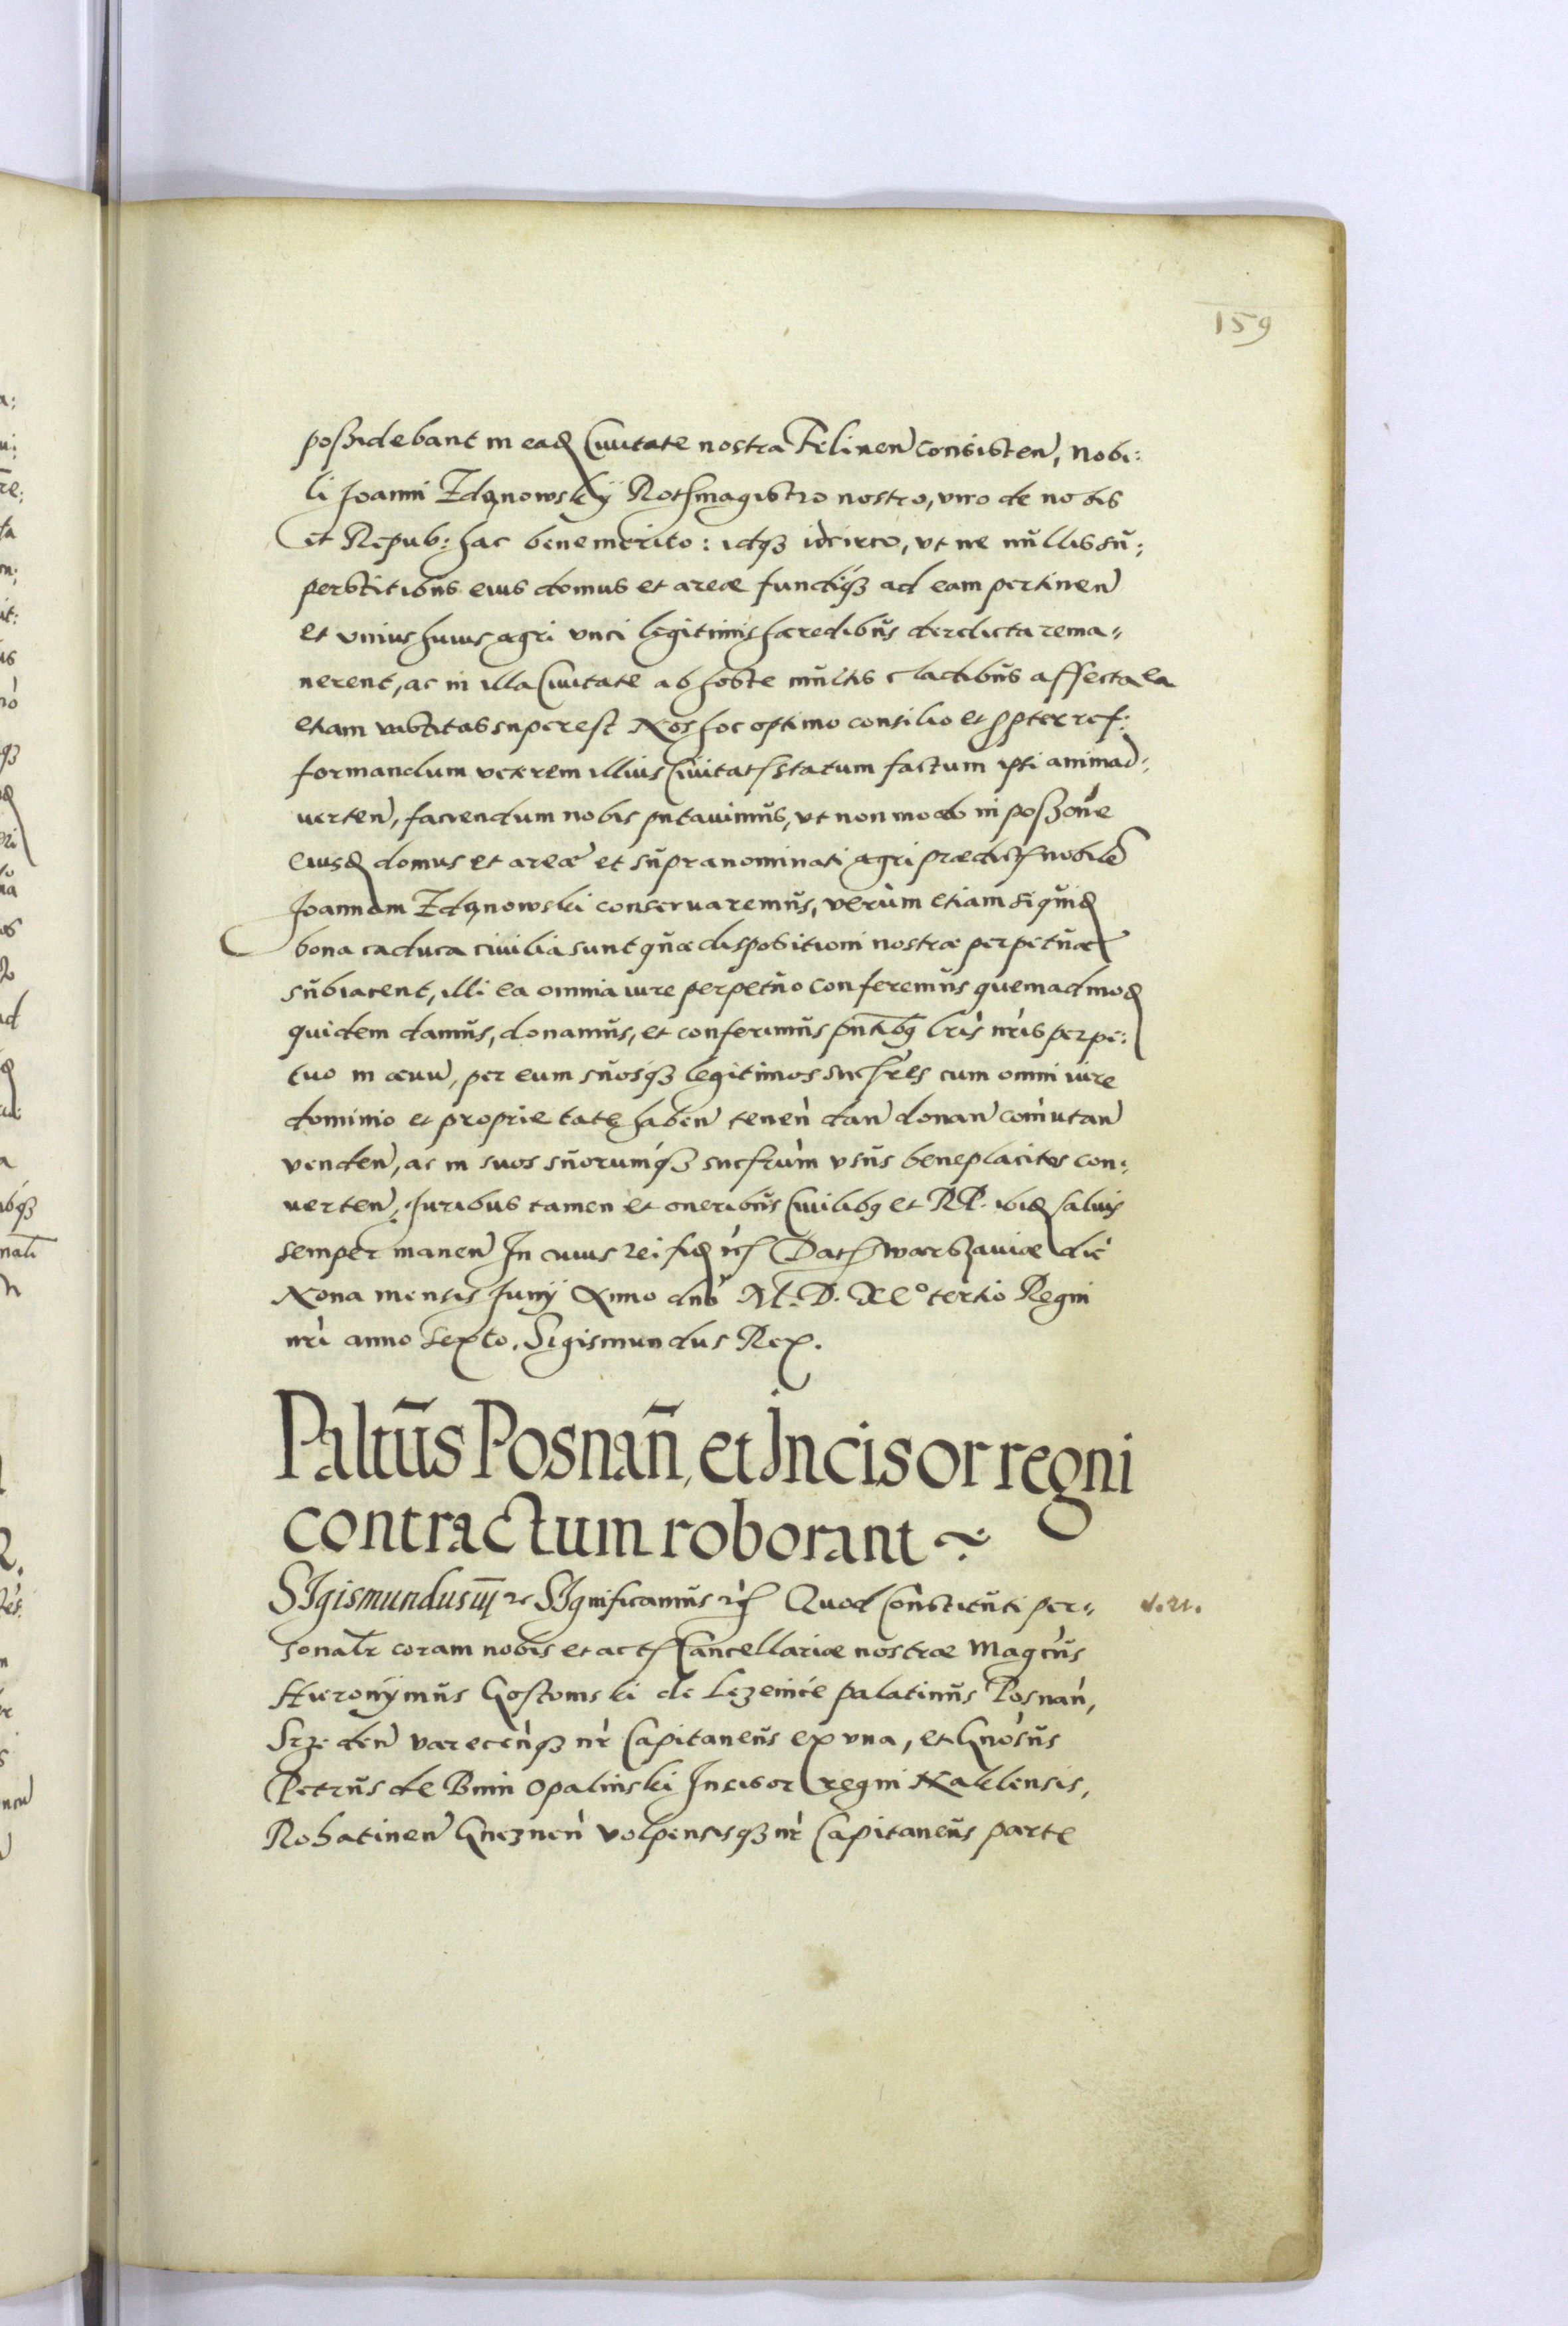 159
possidebant in eadꝫ Civitate nostra Felinen̄ consisten̄, nobi:
li Joanni Zdznowskÿ Rothmagistro nostro, viro de nobis
et Repub: hac benemerito: idqꝫ idcirco, vt ne nŭllis sŭ:
perstitibŭs eius domus et areæ fundiqꝫ ad eam pertinen̄
et vnius huius agri vnci legitimis hæredibŭs derelicta rema=
nerent, ac in illa Civitate ab hoste mŭltis cladibŭs affecta ea
etiam vastitas superest Nos hoc optimo consilio et ꝓpter ref:
formandum veterem illius Civitatꝭ statum factum ipsi animad:
verten̄, faciendum nobis putavimŭs, vt non modo in poss̄one
eiusdꝫ domus et areæ et sŭpranominati agri prædictꝭ nobilē
Joannem Zdznowski conservaremŭs, verùm etiam si quidꝫ
bona caduca civilia sunt qŭæ dispositioni nostræ perpetŭæ
sŭbiacent, illi ea omnia iure perpetŭo conferemŭs quemadmodꝫ
quidem damŭs, donamŭs, et conferimŭs pn̄tibꝫ lr̄is nr̄is perpe:
tuo in ævū, per eum sŭosqꝫ legitimos succr̄es cum omni iure
dominio et proprietate haben̄ tenen̄ dan̄ donan̄ com̄utan̄
venden̄, ac in suos sŭorumqꝫ succr̄um vsŭs beneplacitos con:
verten̄, Juribus tamen et oneribŭs Civilibꝫ et RP. ibidꝫ salvis
semper manen̄ In cuius rei fidꝫ etc̄ Datꝭ warszaviæ die
Nona mensis Junÿ Anno dn̄i M. D. XCº tertio Regni
nr̄i anno Sexto. Sigismundus Rex.
Paltūs Posnan̄, et Incisor regni
contractum roborant
SIgismundus iii etc Significamŭs etc̄ Quod Constitŭti per=
sonalr̄ coram nobis et actꝭ Cancellariæ nostræ Magcŭs
Hieronÿmŭs Gostomski de Lezenice palatinŭs Posnan̄,
Srzeden̄ varecen̄qꝫ nr̄ Capitaneŭs ex vna, et Gnosŭs
Petrŭs de Bnin Opalinski Incisor regni Naklensis,
Rohatinen̄ Gneznen̄ volpensisqꝫ nr̄ Capitaneŭs parte